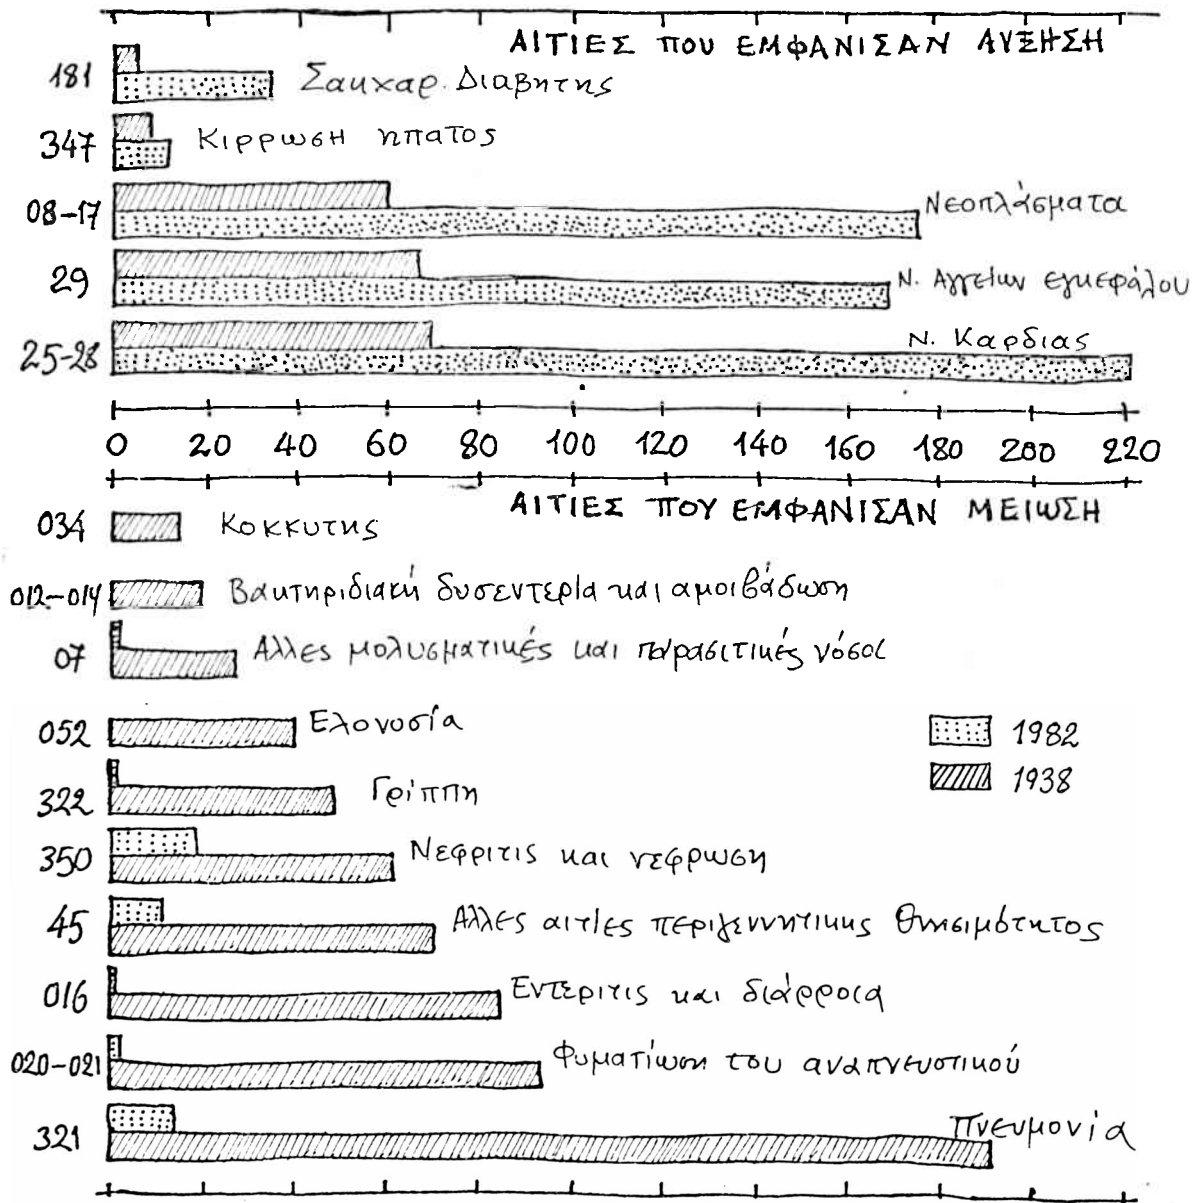 ΑΙΤΙΕΣ ΠΟΥ ΕΜΦΑΝΙΣΑΝ ΑΥΞΗΣΗ
181 Σακχαρ. Διαβητης
347 Κιρρωση ηπατος
08-17 Νεοπλάσματα
29 Ν. Αγγείων εγκεφάλου
25-28 Ν. Καρδιας
0 20 40 60 80 100 120 140 160 180 200 220
ΑΙΤΙΕΣ ΠΟΥ ΕΜΦΑΝΙΣΑΝ ΜΕΙΩΣΗ
034 Κοκκυτης
012-014 Βακτηριδιακή δυσεντερία και αμοιβάδωση
07 Αλλες μολυσματικές και παρασιτικές νόσοι
052 Ελονοσία
1982
322 Γρίππη
1938
350 Νεφριτις και νεφρωση
45 Αλλες αιτίες περιγεννητικης θνησιμότητος
016 Εντεριτις και διάρροια
020-021 Φυματίωση του αναπνευστικού
321 Πνευμονία